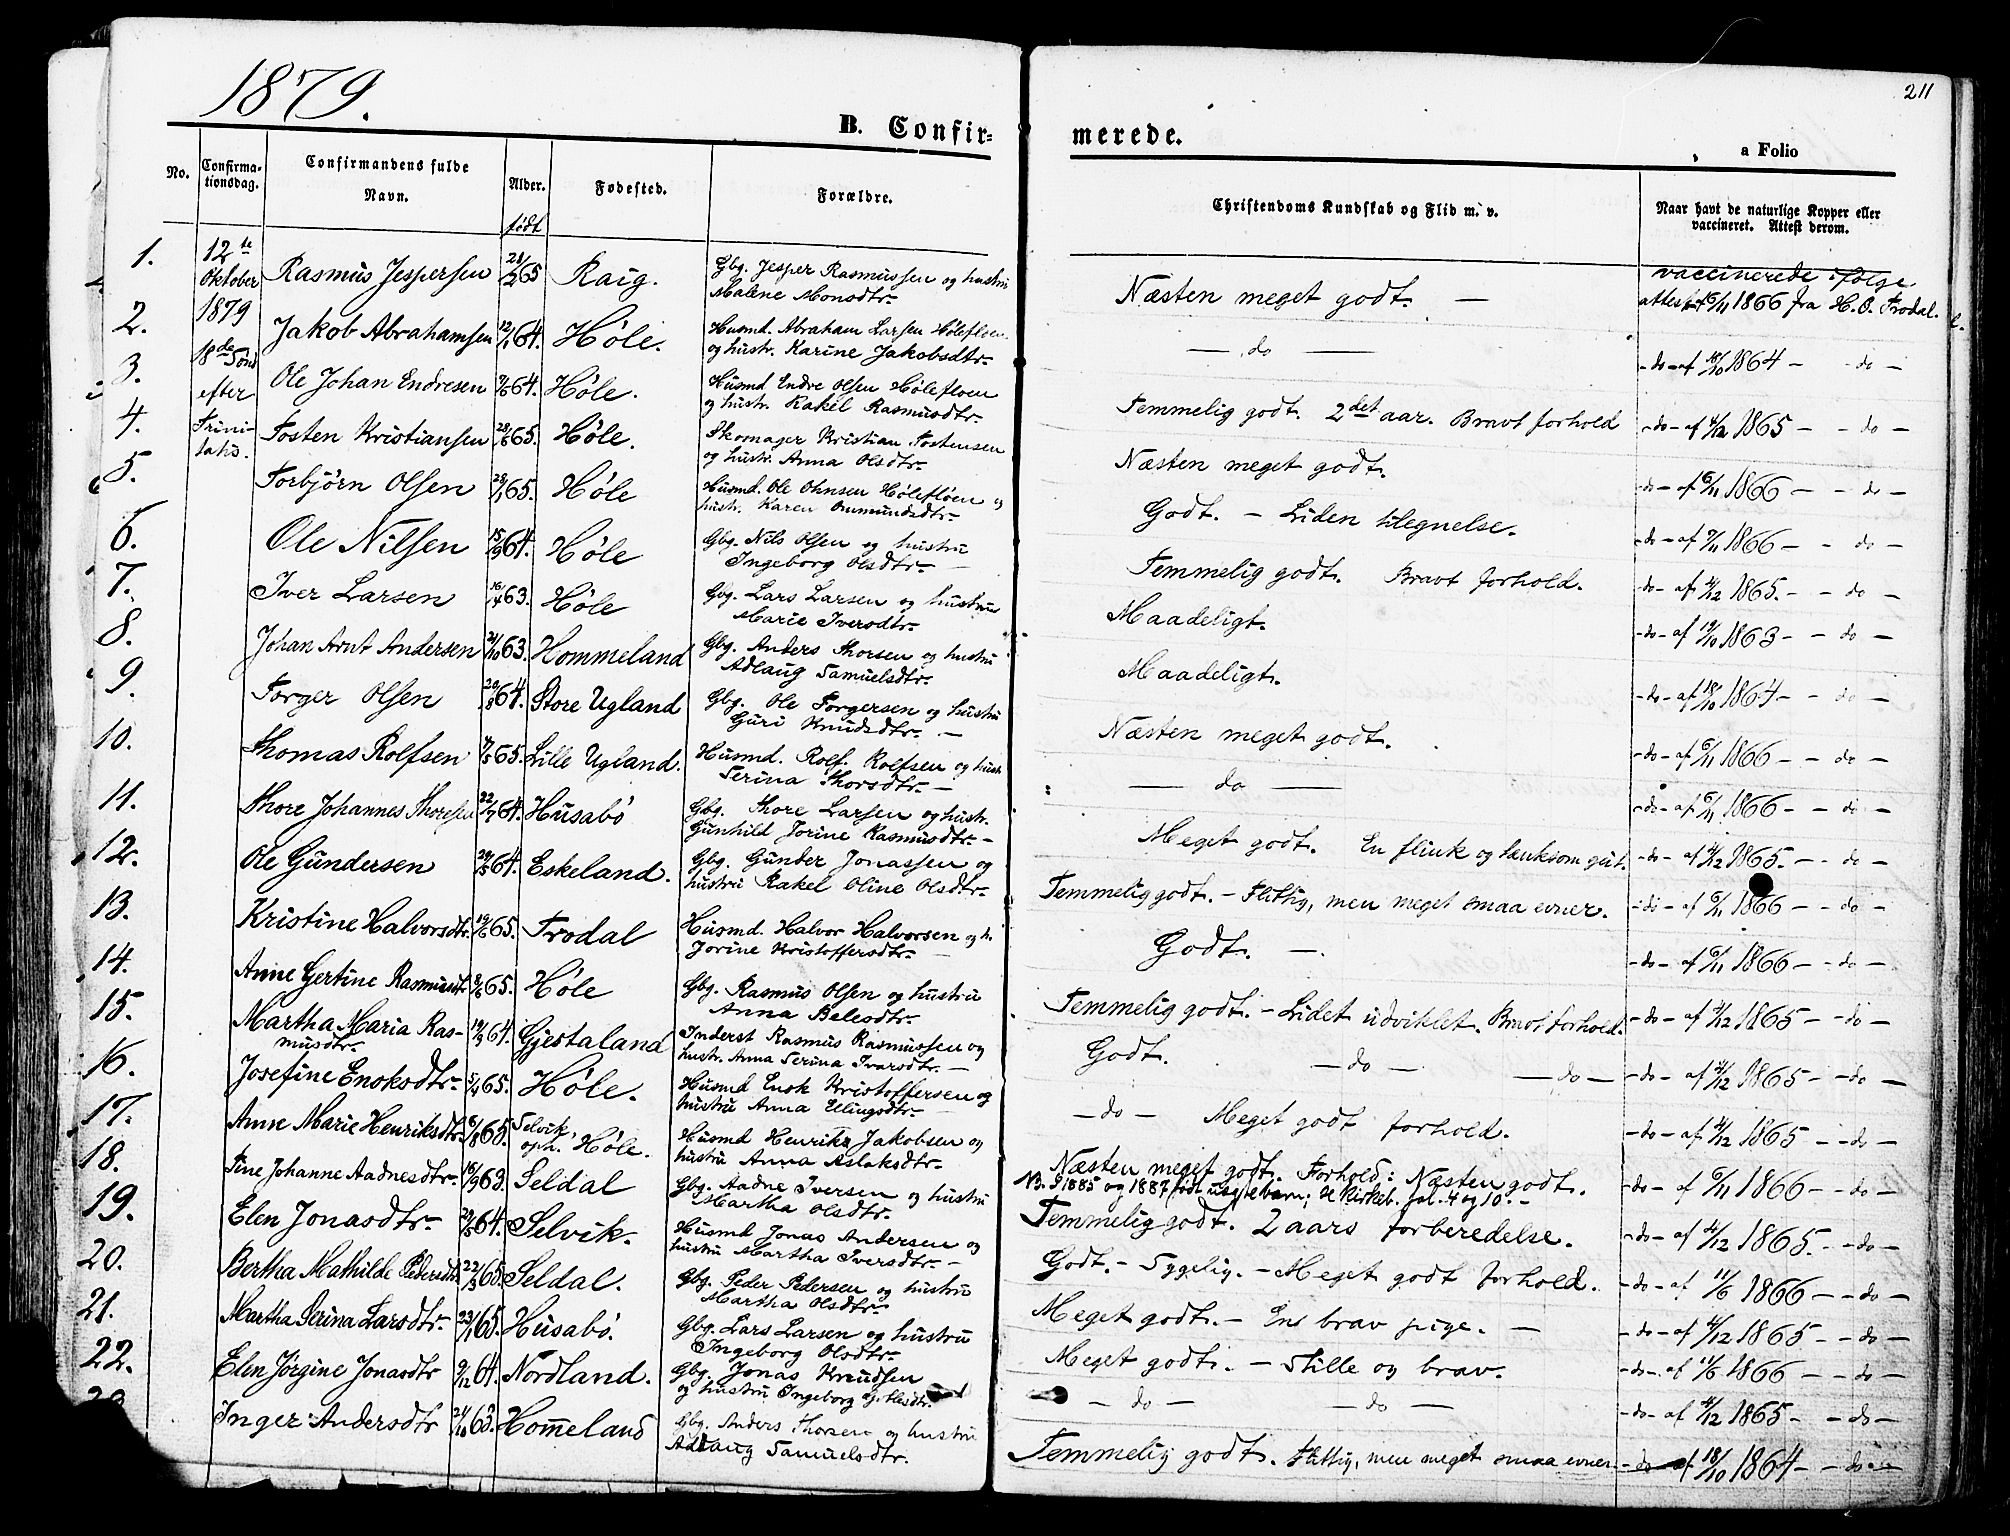 1879.
211
B. Confir=
merede.
a Folio
No.
Confirma-
tionsdag.
Confirmandens fulde
Navn.
Alder.
født
Fødested.
Forældre.
Christendoms Kundskab og Flid m. v.
Naar havt de naturlige Kopper eller
vaccineret. Attest derom.
12te
Oktober
1879
18de Sønd
efter
Trini-
tatis.
1. Rasmus Jespersen 65 Raig. Gbg. Jesper Rasmussen og hustru
Malene Monsdtr.
Næsten meget godt. —
vaccinerede ifølge
attest af 6/11 1866 fra H. O. Trodal.
2. Jakob Abrahamsen 12/1 64. Høle. Husmd. Abraham Larsen Hølefloen
og hustr. Karine Jakobsdtr.
— do — -do- af 18/10 1864 — -do-
3. Ole Johan Endresen 64. Høle. Husmd Endre Olsen Hølefloen
og hustr. Rakel Rasmusdtr.
Temmelig godt. 2det aar. Bravt forhold -do- af 4/12 1865 — -do-
4. Tosten Kristiansen 65. Høle. Skomager Kristian Tostensen
og hustr. Anna Olsdtr.
Næsten meget godt. -do- af 6/11 1866 — -do-
5. Torbjörn Olsen 65. Høle Husmd. Ole Ohnsen Høleflöen og
hustr. Karen Ommundsdtr.
Godt. — Liden tilegnelse. -do- af 1866 — -do-
6. Ole Nilsen 15/9 64. Høle Gbg. Nils Olsen og hustru
Ingeborg Olsdtr.
Temmelig godt. Bravt forhold. -do- af 4/12 1865. — do —
7. Iver Larsen 63. Høle Gbg. Lars Larsen og hustrus
Marie Iversdtr.
Maadeligt. -do- af 19/10 1863 — do —
8. Johan Arnt Andersen 21/10 63. Hommeland Gbg. Anders Thorsen og hustru
Adlaug Samuelsdtr.
Maadeligt. -do- af 18/10 1864 — do —
9. Torger Olsen 64. Store Ugland Gbg. Ole Torgersen og hustru
Guri Knudsdtr. —
Næsten meget godt. -do- af 6/11 1866 — do —
10. Thomas Rolfsen 65. Lille Ugland. Husmd. Rolf. Rolfsen og hustr
Serina Thorsdtr. —
— do — -do- af 6/11 1866 — do —
11. Thore Johannes Thoresen 22/7 64. Husabö Gbg. Thore Larsen og hustr.
Gunhild Jorine Rasmusdtr. —
Meget godt. En flink og lænksom gut. -do- af 4/12 1865. — do —
12. Ole Gundersen 64. Eskeland. Gbg. Gunder Jonassen og
hustru Rakel Oline Olsdtr.
Temmelig godt. — Flittig, men meget smaa evner. -do- af 6/11 1866 — do —
13. Kristine Halvorsdtr. 65. Trodal Husmd. Halvor Halvorsen og h.
Jorine Kristoffersdtr. —
Godt. — -do- af 6/11 1866 — do —
14. Anne Gertine Rasmusdtr 65. Høle Gbg. Rasmus Olsen og hustru
Anna Belesdtr.
Temmelig godt. — Lidet udviklet. Bravt forhold. -do- af 4/12 1865 — do —
15. Martha Maria Ras-
musdtr. 19/9 64. Gjestaland Inderst Rasmus Rasmussen og
hustr. Anna Serina Ivarsdtr. —
Godt. — do — — do — -do- af 4/12 1865 — do —
16. Josefine Enoksdtr. 5/4 65. Høle. Husmd Enok Kristoffersen og
hustru Anna Elingsdtr. —
— do — Meget godt forhold. -do- af 4/12 1865 — do —
17. Anne Marie Henriksdtr. 65. Selvik,
oph. Høle. Husmd Henriks Jakobsen og
hustru Anna Aslaksdtr.
Næsten meget godt. Forhold: Næsten godt. -do- af 6/11 1866 — do —
18. Tine Johanne Aadnesdtr. 16/9 63. Seldal Gbg. Aadne Iversen og hustru
Martha Olsdtr.
NB. I 1885 og 1887 født uægte barn; se kirkeb. fol. 4 og 10. —
Temmelig godt. 2 aars forberedelse. -do- af 4/12 1865. — do —
19. Elen Jonasdtr. 64. Selvik. Husmd Jonas Andersen og
hustru Martha Iversdtr. —
Godt. — Sygelig. — Meget godt forhold. -do- af 11/6 1866 — do —
20. Bertha Mathilde Pedersdtr. 22/3 65. Seldal. Gbg. Peder Pedersen og hustru
Martha Olsdtr.
Meget godt. — En brav pige. — -do- af 4/12 1865 — do —
21. Martha Serina Larsdtr. 23/1 65. Husabö. Gbg. Lars Larsen og hustru
Ingeborg Olsdtr.
Meget godt. — Stille og brav. -do- af 11/6 1866 — do —
22. Elen Jörgine Jonasdtr 9/12 64. Nordland. Gbg. Jonas Knudsen
og hustru Ingeborg
— do — — do — -do- af 4/12 1865 — do —
23. Inger Andersdtr 21/10 63. Homeland Gbg. Anders Thorsen og hustru
Adlaug Samuelsdtr.
Temmelig godt. Flittig, men meget smaa evner -do- af 18/10 1864 — do —